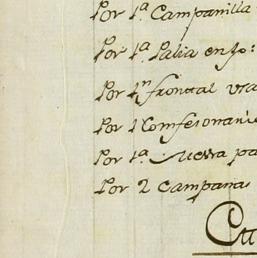 Por 1ª Campanilla
Por 1ª Palia en
Por 1 frontal
Por 1 Comfesonari
Por 1ª Messa pa
Por 2 Campanas
Cu